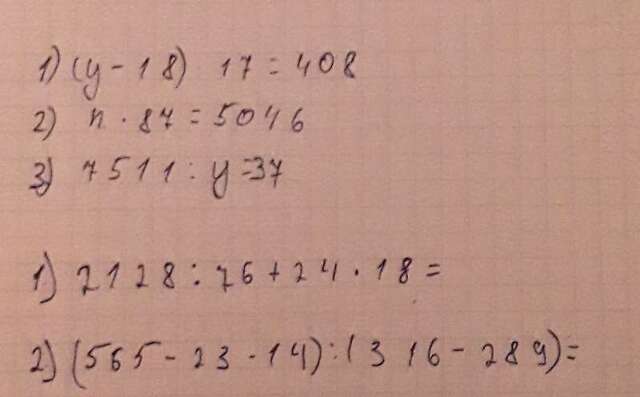 1) (y - 18) 17 = 408
2) n · 87 = 5046
3) 7511 : y = 37
1) 2128 : 76 + 24 · 18 =
2) (565 - 23 · 14) : (316 - 289) =